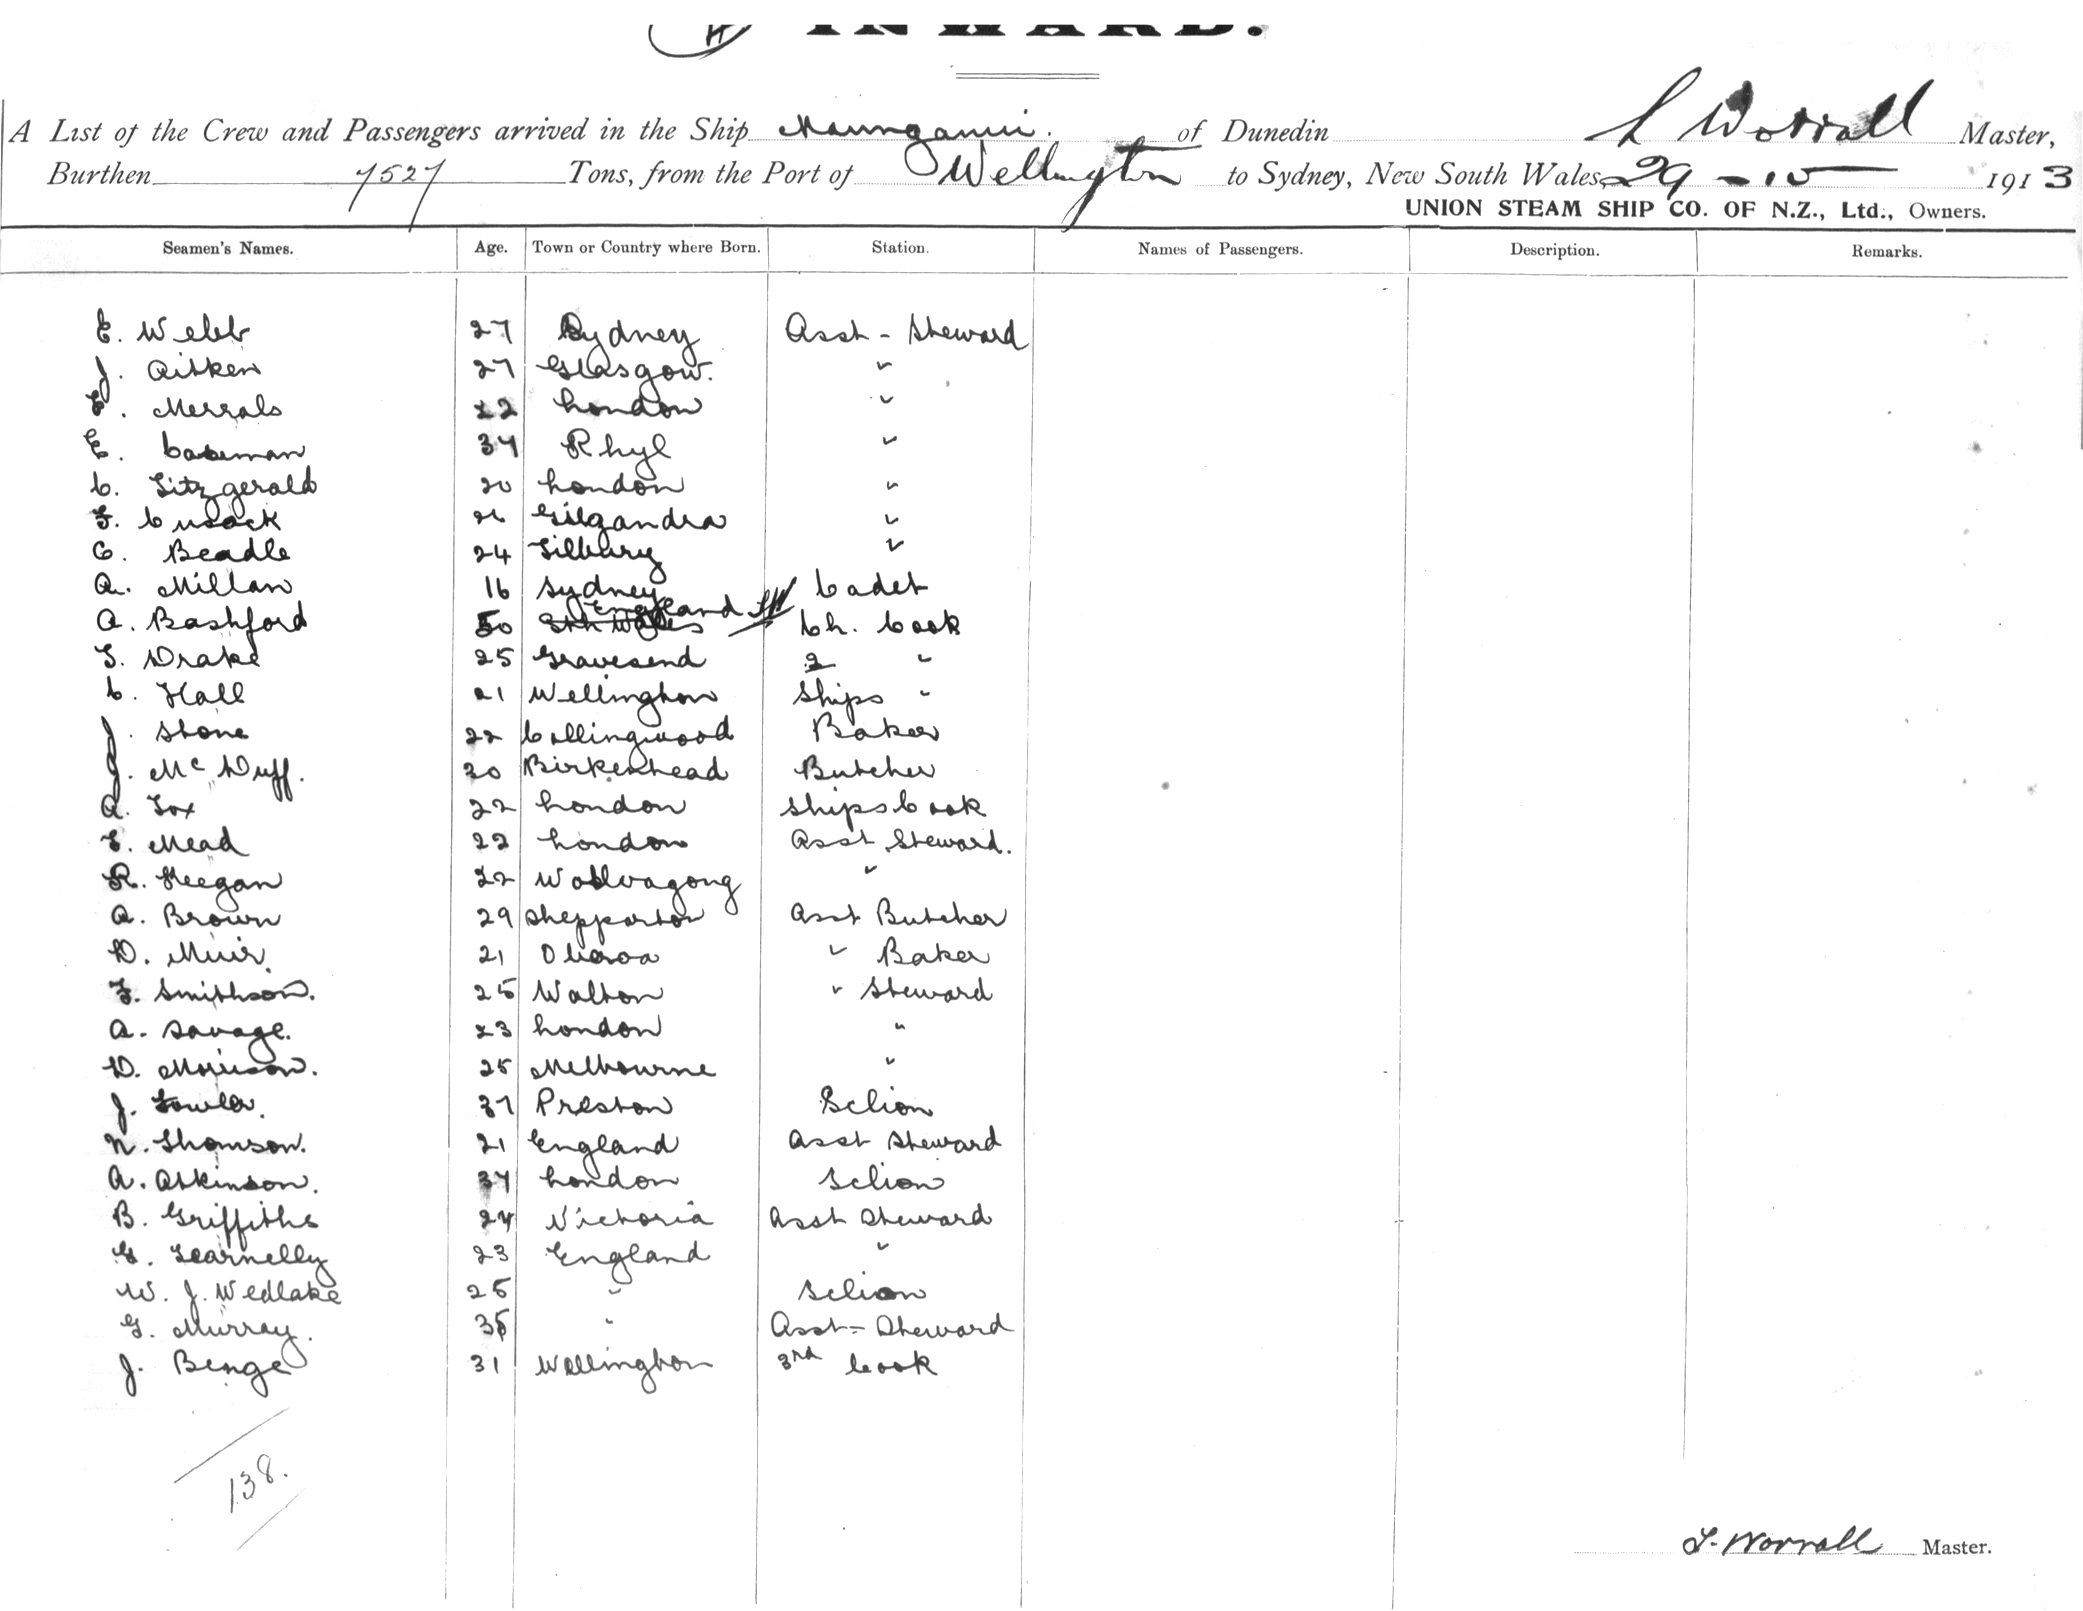 INWARD.
A List of the Crew and Passengers arrived in the Ship Maunganui. of Dunedin Worrall Master,
Burthen 7527 Tons, from the Port of Wellington to Sydney, New South Wales, 29 - 10 1913
UNION STEAM SHIP CO. OF N.Z., Ltd., Owners.
Seamen's Names. Age. Town or Country where Born. Station. Names of Passengers. Description. Remarks.
E. Webb 27 Sydney Asst - Steward
J. Aitken 27 Glasgow. "
E. Merrals 22 London "
E. 34 Rhyl "
C. Fitzgerald 20 London "
F. Cusack 26 Gilgandra "
C. Beadle 24 Tilbury "
A. Millan 16 Sydney Cadet
England
A. Bashford 50 Sth Wales Ch. Cook
T. Drake 25 Gravesend 2 "
C. Hall 21 Wellington Ships "
J. Stone 22 Collingwood Baker
J. Mc Duff. 30 Birkenhead Butcher
A. Fox 22 London Ships Cook
E. Mead 22 London Asst Steward.
R. Keegan 22 Asst "
A. Brown 29 Shepparton Asst Butcher
D. Muir. 21 " Baker
F. Smithson. 25 Walton " Steward
A. Savage. 23 London "
D. Morrison. 25 Melbourne "
J. Fowler. 37 Preston Sclion
N. Thomson. 21 England Asst Steward
A. Atkinson. 34 London Sclion
B. Griffiths 24 Victoria Asst Steward
G. Fearnelly 23 England "
W. J. Wedlake 25 " Sclion
G. Murray. 35 " Asst - Steward
J. Benge 31 Wellington 3rd Cook
138.
Worrall Master.